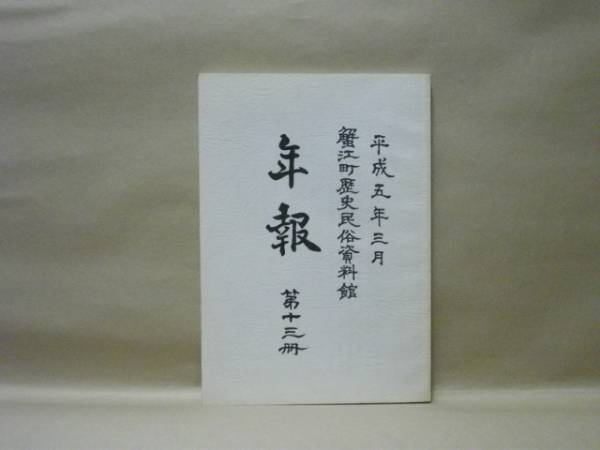 平成五年三月
蟹江町歴史民俗資料館
年報
第十三册